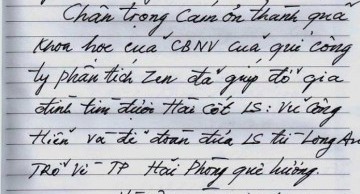 Chân trọng cám ơn thành quả
Khoa học của CBNV của quí công
ty phân tích Zen đã giúp đỡ gia
đình tìm được Hài cốt LS: Vũ Công
Hiến và để đoàn đưa LS từ Long An
TRở Về TP Hải Phòng quê hương.